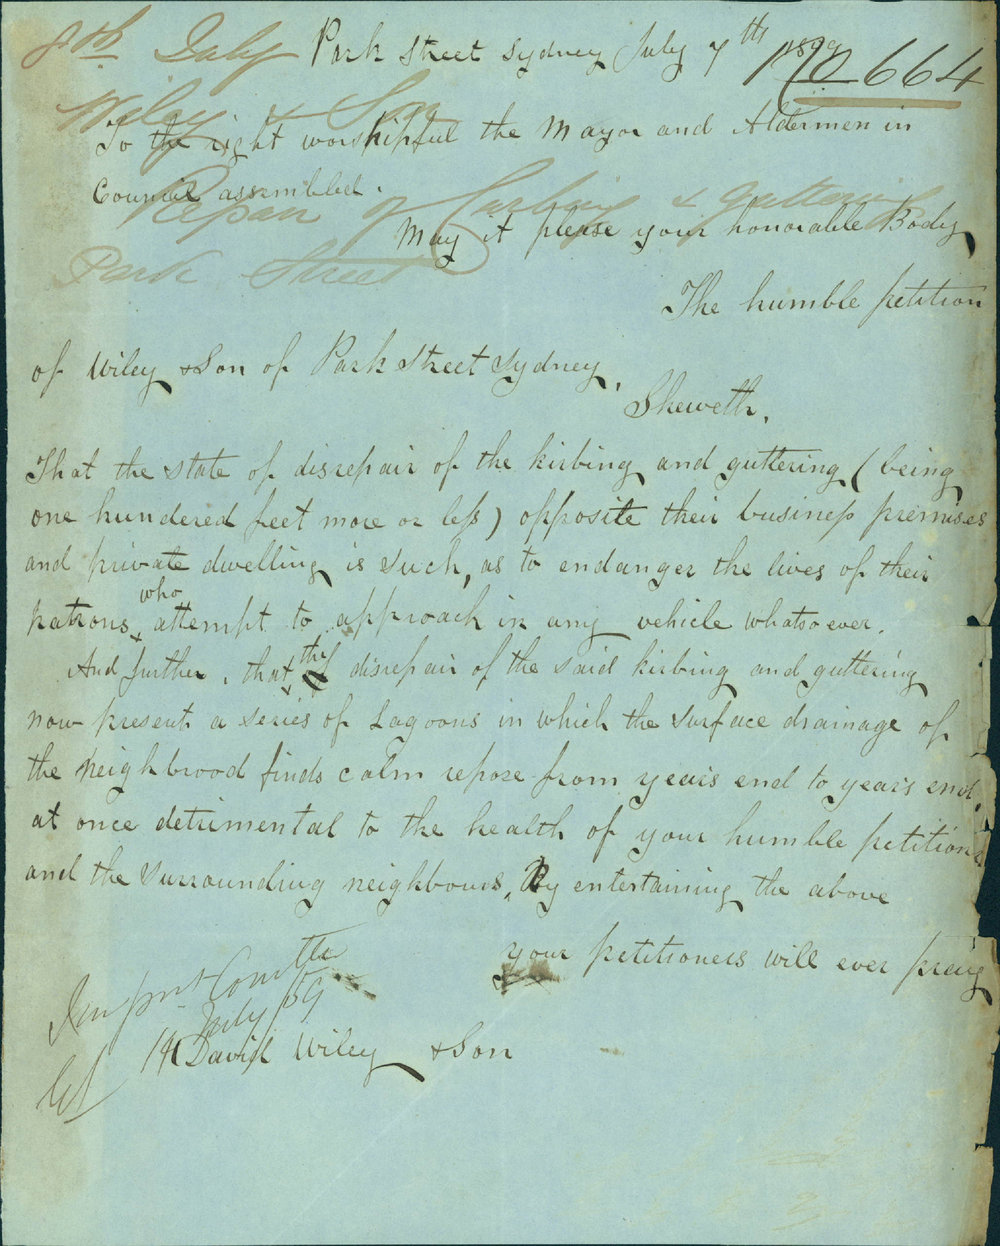 8th July
Park Street Sydney July 7th 1859
No 664
Wiley & Son
To the right worshipful the Mayor and Aldermen in
Council assembled.
Repair of Curbing & guttering
May it please your honorable Body
Park Street
The humble petition
of Wiley & Son of Park Street Sydney,
Sheweth,
That the state of disrepair of the kirbing and guttering (being
one hundered feet more or less) opposite their business premises
and private dwelling is such, as to endanger the lives of their
patrons who attempt to approach in any vehicle whatsoever.
And further, that the disrepair of the said kirbing and guttering
now present a series of Lagoons in which the surface drainage of
the neighbrood finds calm repose from years end to years end,
at once detrimental to the health of your humble petitions
and the surrounding neighbours, By entertaining the above
your petitioners will ever pray
Impmt Comttee
14 July /59
David Wiley & Son